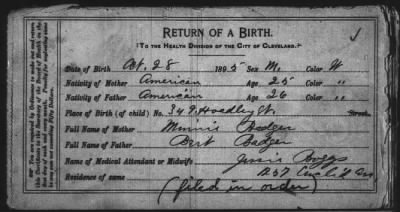 RETURN OF A BIRTH.
[To the Health Division of the City of Cleveland.]
Date of Birth Oct. 28 1895 Sex M. Color W
Nativity of Mother American Age 25 Color "
Nativity of Father American Age 26 Color "
Place of Birth (of child) No. 349 Hoadley St. Street.
Full Name of Mother Minnie Badger
Full Name of Father Bert Badger
Name of Medical Attendant or Midwife Jessie Boggs
Residence of same 1257
(filed in order)